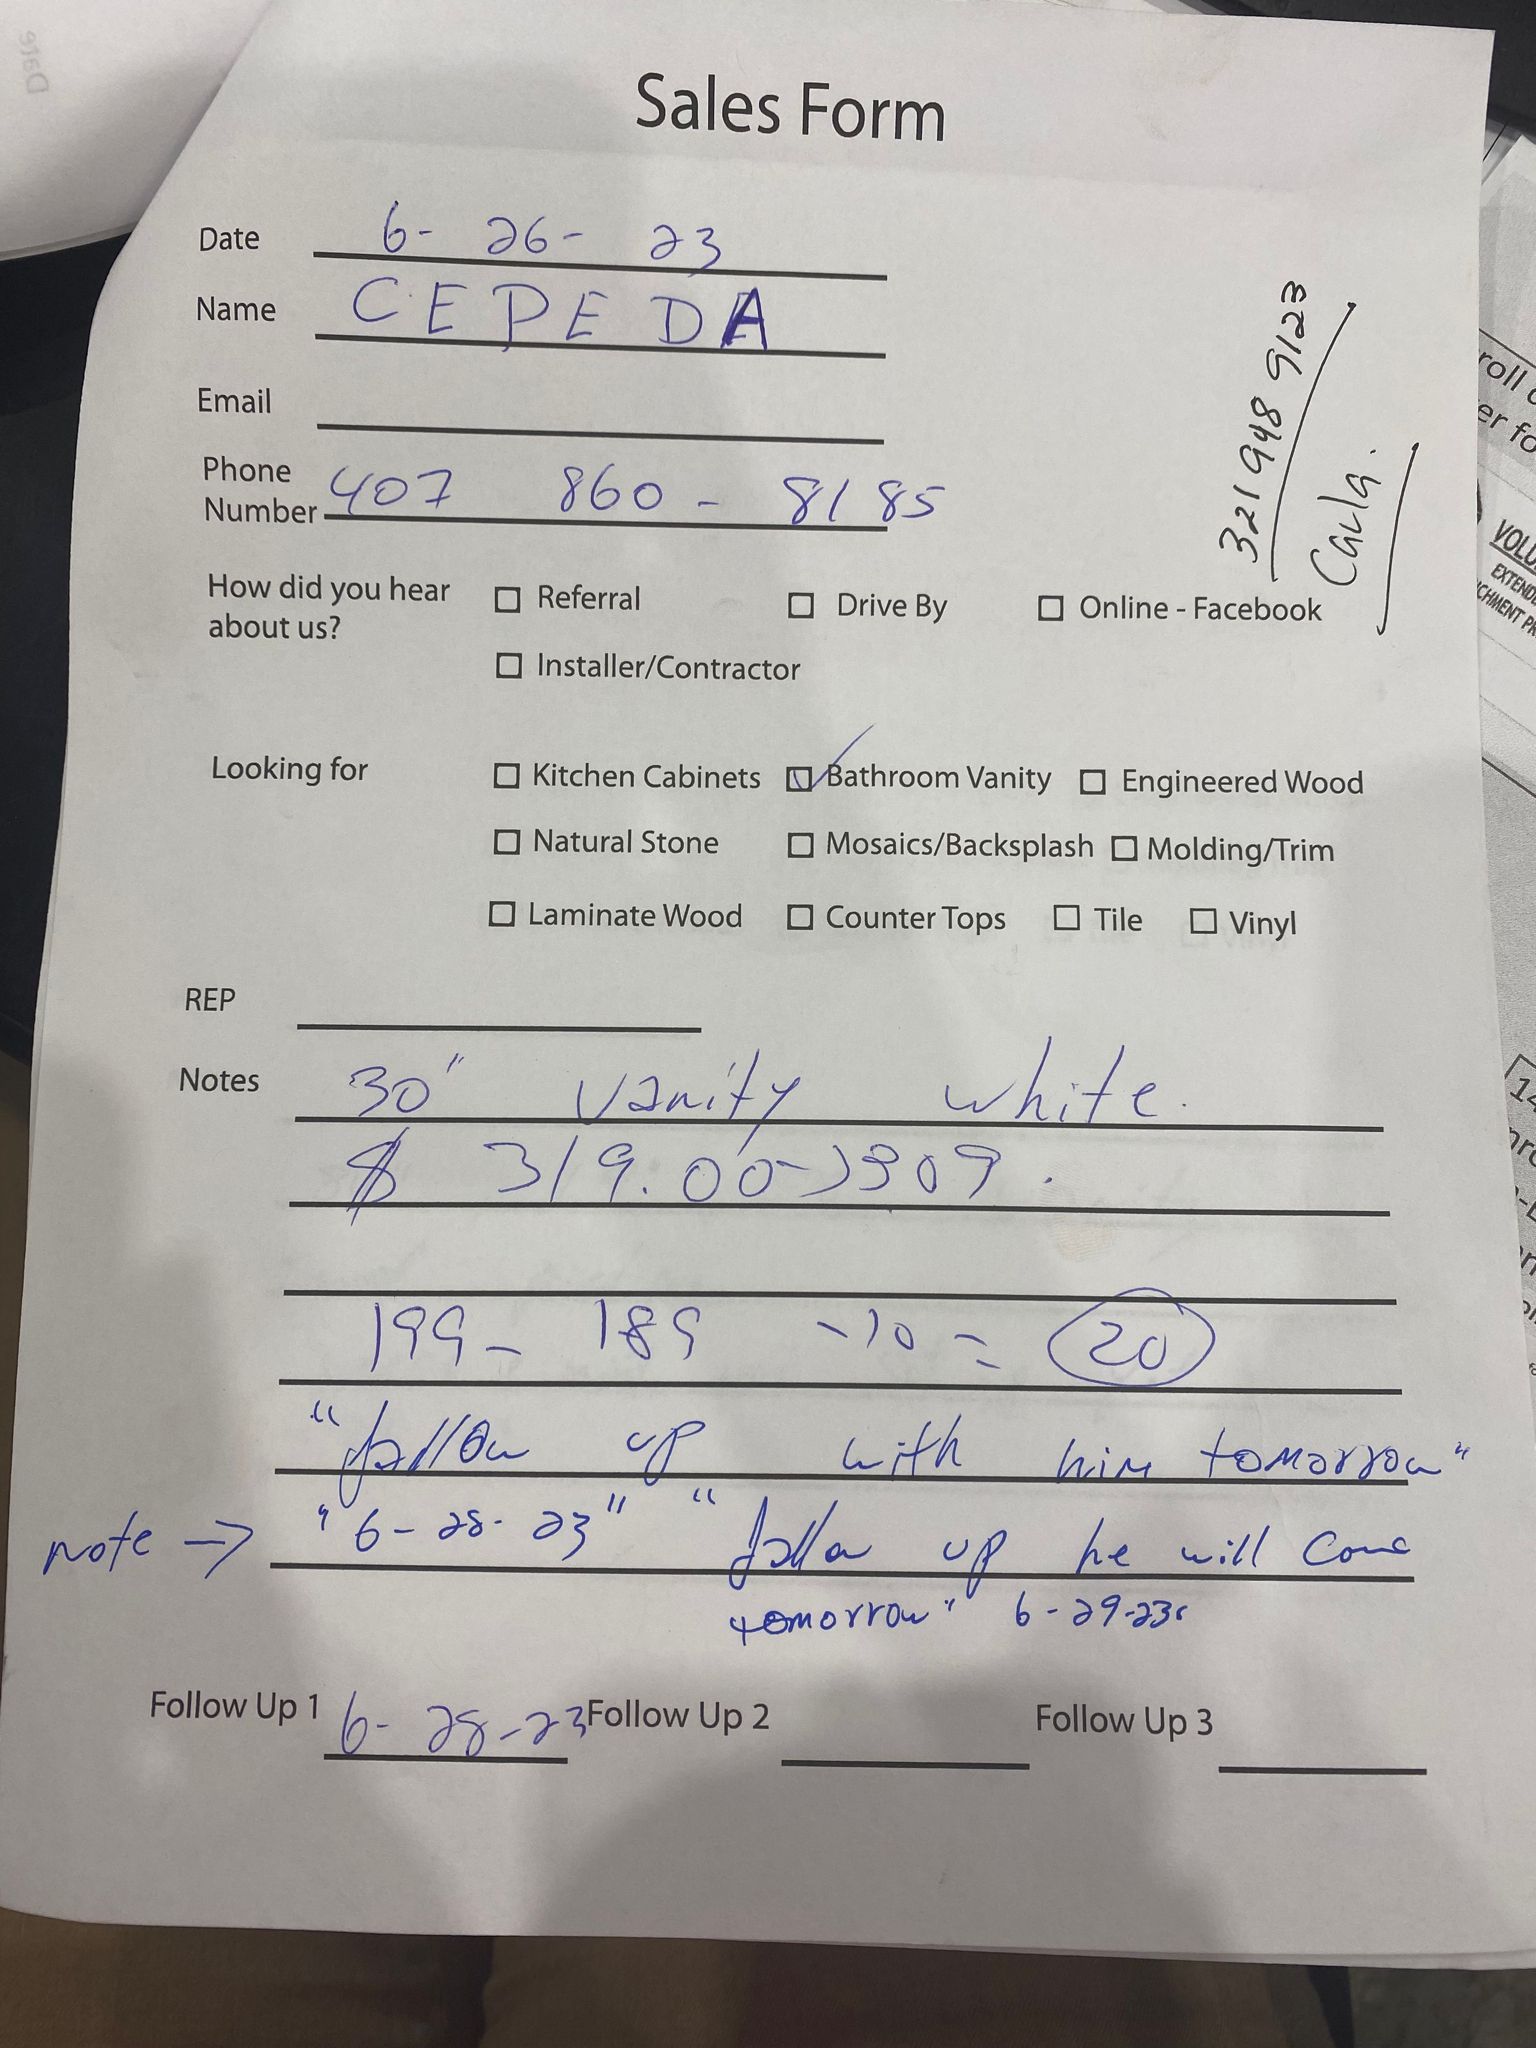 Sales Form
Date 6- 26- 23
Name CEPEDA
Email
Phone Number 407 860 - 8185
321 948 9123
Carla.
How did you hear about us?
☐ Referral ☐ Drive By ☐ Online - Facebook
☐ Installer/Contractor
Looking for
☐ Kitchen Cabinets ☑ Bathroom Vanity ☐ Engineered Wood
☐ Natural Stone ☐ Mosaics/Backsplash ☐ Molding/Trim
☐ Laminate Wood ☐ Counter Tops ☐ Tile ☐ Vinyl
REP
Notes 30" vanity white.
$ 319.00 -> 309.
199 - 189 -10 = 20
"follow up with him tomorrow"
note → "6-28-23" "follow up he will come
tomorrow" 6-29-23
Follow Up 1 6-28-23 Follow Up 2 Follow Up 3
VOLU
EXTENDE